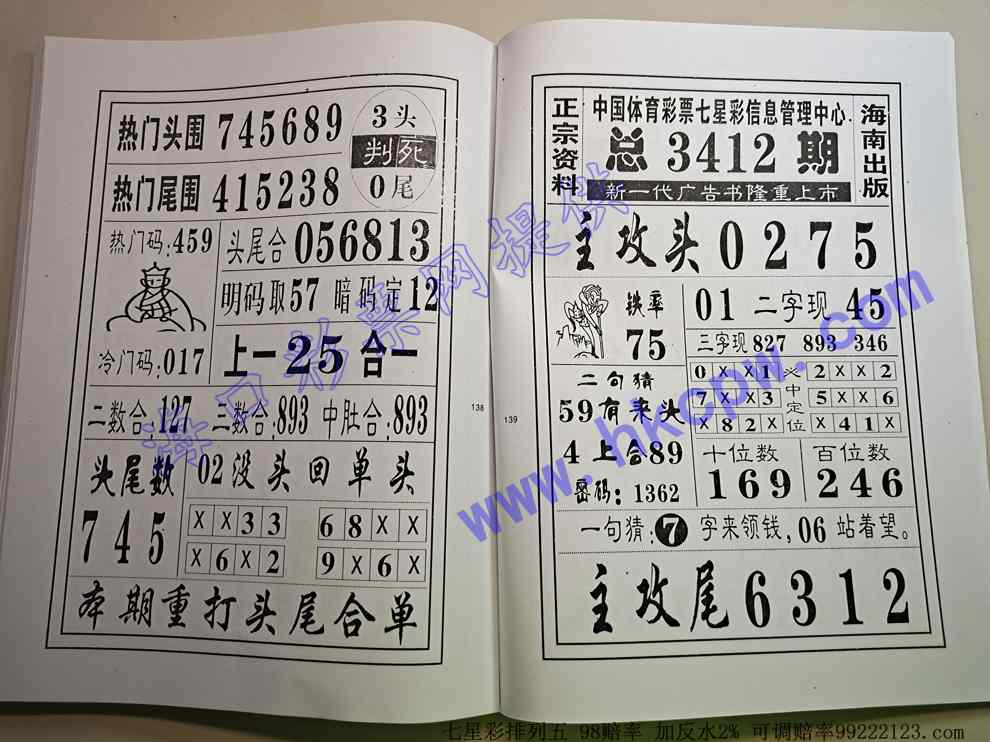 热门头围 745689
3头
判死
0尾
热门尾围 415238
热门码:459
头尾合 056813
明码取57 暗码定12
冷门码:017
上一25合一
二数合:127 三数合:893 中肚合:893
头尾数
745
02没头回单头
X X 3 3
6 8 X X
X 6 X 2
9 X 6 X
本期重打头尾合单
138
139
正宗资料
中国体育彩票七星彩信息管理中心
总 3412 期
新一代广告书隆重上市
海南出版
主攻头 0275
铁率
75
01 二字现 45
三字现 827 893 346
必中定位
0 X X 1
2 X X 2
7 X X 3
5 X X 6
X 8 2 X
X 4 1 X
二句猜
59有来头
4上合89
密码: 1362
十位数
169
百位数
246
一句猜:7字来领钱,06站着望。
主攻尾 6312
海口彩票网提供
www.hkcpw.com
七星彩排列五 98赔率 加反水2% 可调赔率99222123.com